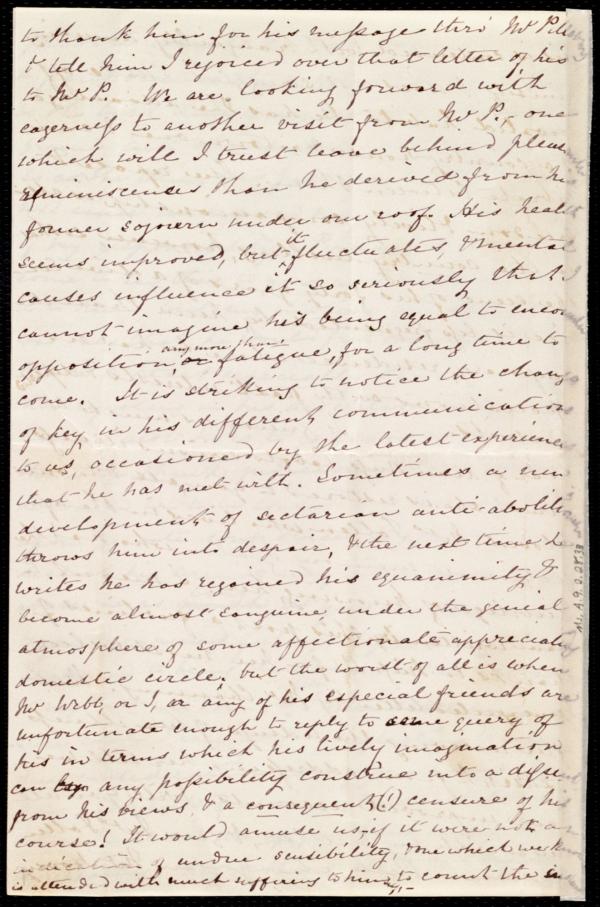 to thank him for his message thro' Mr P
& tell him I rejoiced over that letter of his
to Mr P. We are looking forward with
eagerness to another visit from Mr P. - one
which will I trust leave behind
reminiscences than he derived from his
former sojourn under our roof. His heal
seems improved, but it fluctuates, & mental
causes influence it so seriously that I
cannot imagine his being equal to encou
opposition, any more than fatigue, for a long time to
come. It is striking to notice the chang
of key in his different communications
to us, occasioned by the latest experience
that he has met with. Sometimes a new
development of sectarian anti-aboliti
throws him into despair, & the next time he
writes he has regained his equanimity &
become almost sanguine, under the genial
atmosphere of some affectionate appreciating
domestic circle; but the worst of all is when
Mr Webb, or I, or any of his especial friends are
unfortunate enough to reply to some query of
his in terms which his lively imagination
can by any possibility construe into a
from his views & a consequent (!) censure of his
course! It would amuse us, if it were not an
indication of undue sensibility, & one which we know
is attended with much suffering to him, to count the
Ms. A.9.2.28.33